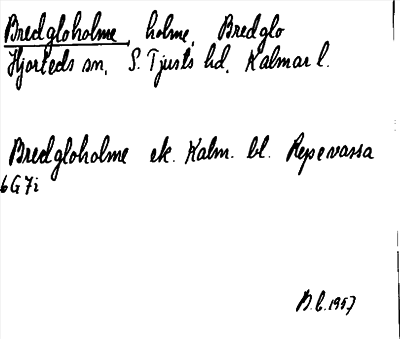 Bredgloholme, holme, Bredglo
Hjorteds sn, S. Tjusts hd, Kalmar l.
Bredgloholme ek. Kalm. bl. Repevassa
6G7i
B.b. 1957